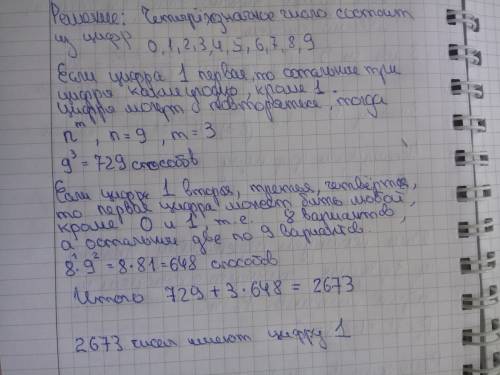 Решение: Четырёхзначное число состоит
из цифр
0,1,2,3,4,5,6,7,8,9
Если цифра 1 первая, то остальные три
цифры какие угодно, кроме 1.
цифры могут повторяться, тогда
n^m, n = 9, m = 3
9³ = 729 способов
Если цифра 1 вторая, третья, четвёртая,
то первая цифра может быть любой,
кроме 0 и 1, т.е. 8 вариантов,
а остальные две по 9 вариантов
8¹·9² = 8·81 = 648 способов
Итого 729 + 3·648 = 2673
2673 чисел имеют цифру 1